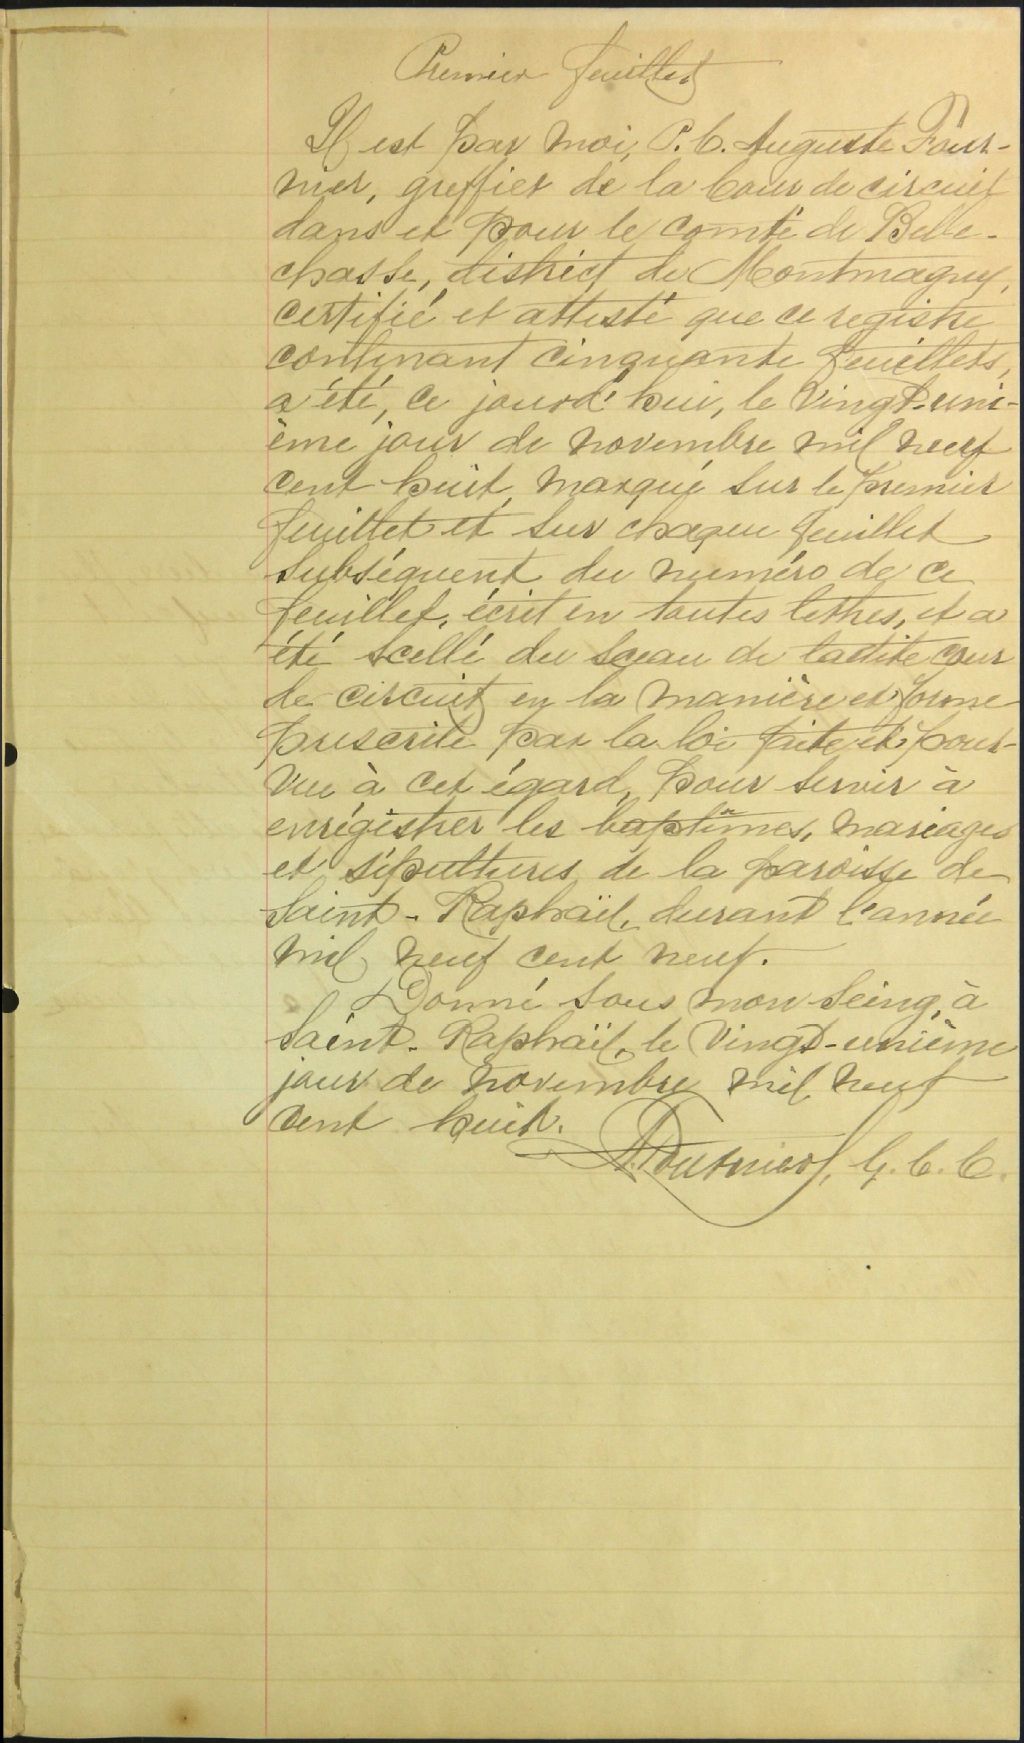 Premier feuillet
Il est par moi, P. C. Auguste Four-
nier, greffier de la Cour de circuit
dans et pour le comté de Belle-
chasse, district de Montmagny,
certifié et attesté que ce registre
contenant cinquante feuillets,
a été, ce jourd'hui, le vingt-uni-
ème jour de novembre mil neuf
cent huit, marqué sur le premier
feuillet et sur chaque feuillet
subséquent du numéro de ce
feuillet, écrit en toutes lettres, et a
été scellé du sceau de ladite cour
de circuit en la manière et forme
prescrite par la loi faite et pour-
vue à cet égard, pour servir à
enrégistrer les baptêmes, mariages
et sépultures de la paroisse de
Saint-Raphaël, durant l'année
mil neuf cent neuf.
Donné sous mon seing, à
Saint-Raphaël, le vingt-unième
jour de novembre mil neuf
cent huit.
A. Fournier, G. C. C.